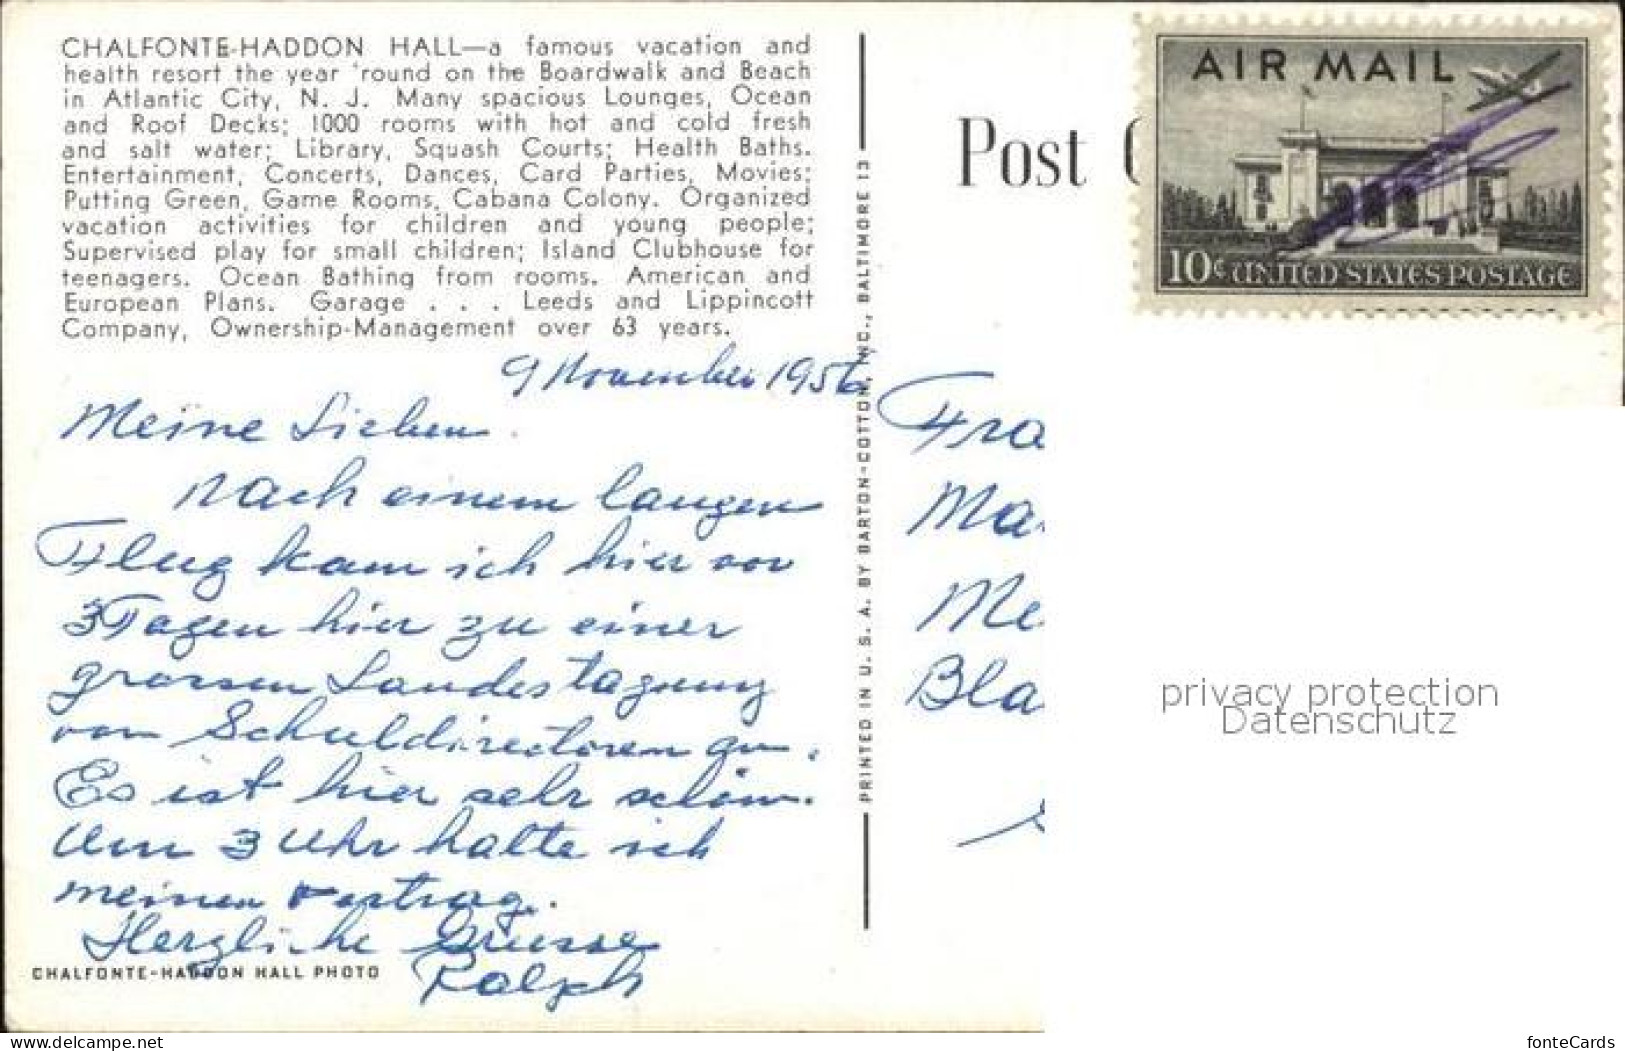 CHALFONTE-HADDON HALL—a famous vacation and
health resort the year 'round on the Boardwalk and Beach
in Atlantic City, N. J. Many spacious Lounges, Ocean
and Roof Decks; 1000 rooms with hot and cold fresh
and salt water; Library, Squash Courts; Health Baths.
Entertainment, Concerts, Dances, Card Parties, Movies;
Putting Green, Game Rooms, Cabana Colony. Organized
vacation activities for children and young people;
Supervised play for small children; Island Clubhouse for
teenagers. Ocean Bathing from rooms. American and
European Plans. Garage . . . Leeds and Lippincott
Company, Ownership-Management over 63 years.
9 November 1956
Meine Lieben
Nach einem langen
Flug kam ich hier vor
3 Tagen hier zu einer
grossen Landestagung
von Schuldirectoren an.
Es ist hier sehr schön.
Um 3 Uhr halte ich
meinen Vortrag.
Herzliche Grüsse
Ralph
CHALFONTE-HADDON HALL PHOTO
PRINTED IN U. S. A. BY BARTON-COTTON, INC., BALTIMORE 13
Post
AIR MAIL
10¢ UNITED STATES POSTAGE
Fra
Ma
Me
Bla
privacy protection
Datenschutz
my.delcampe.net
fonteCards